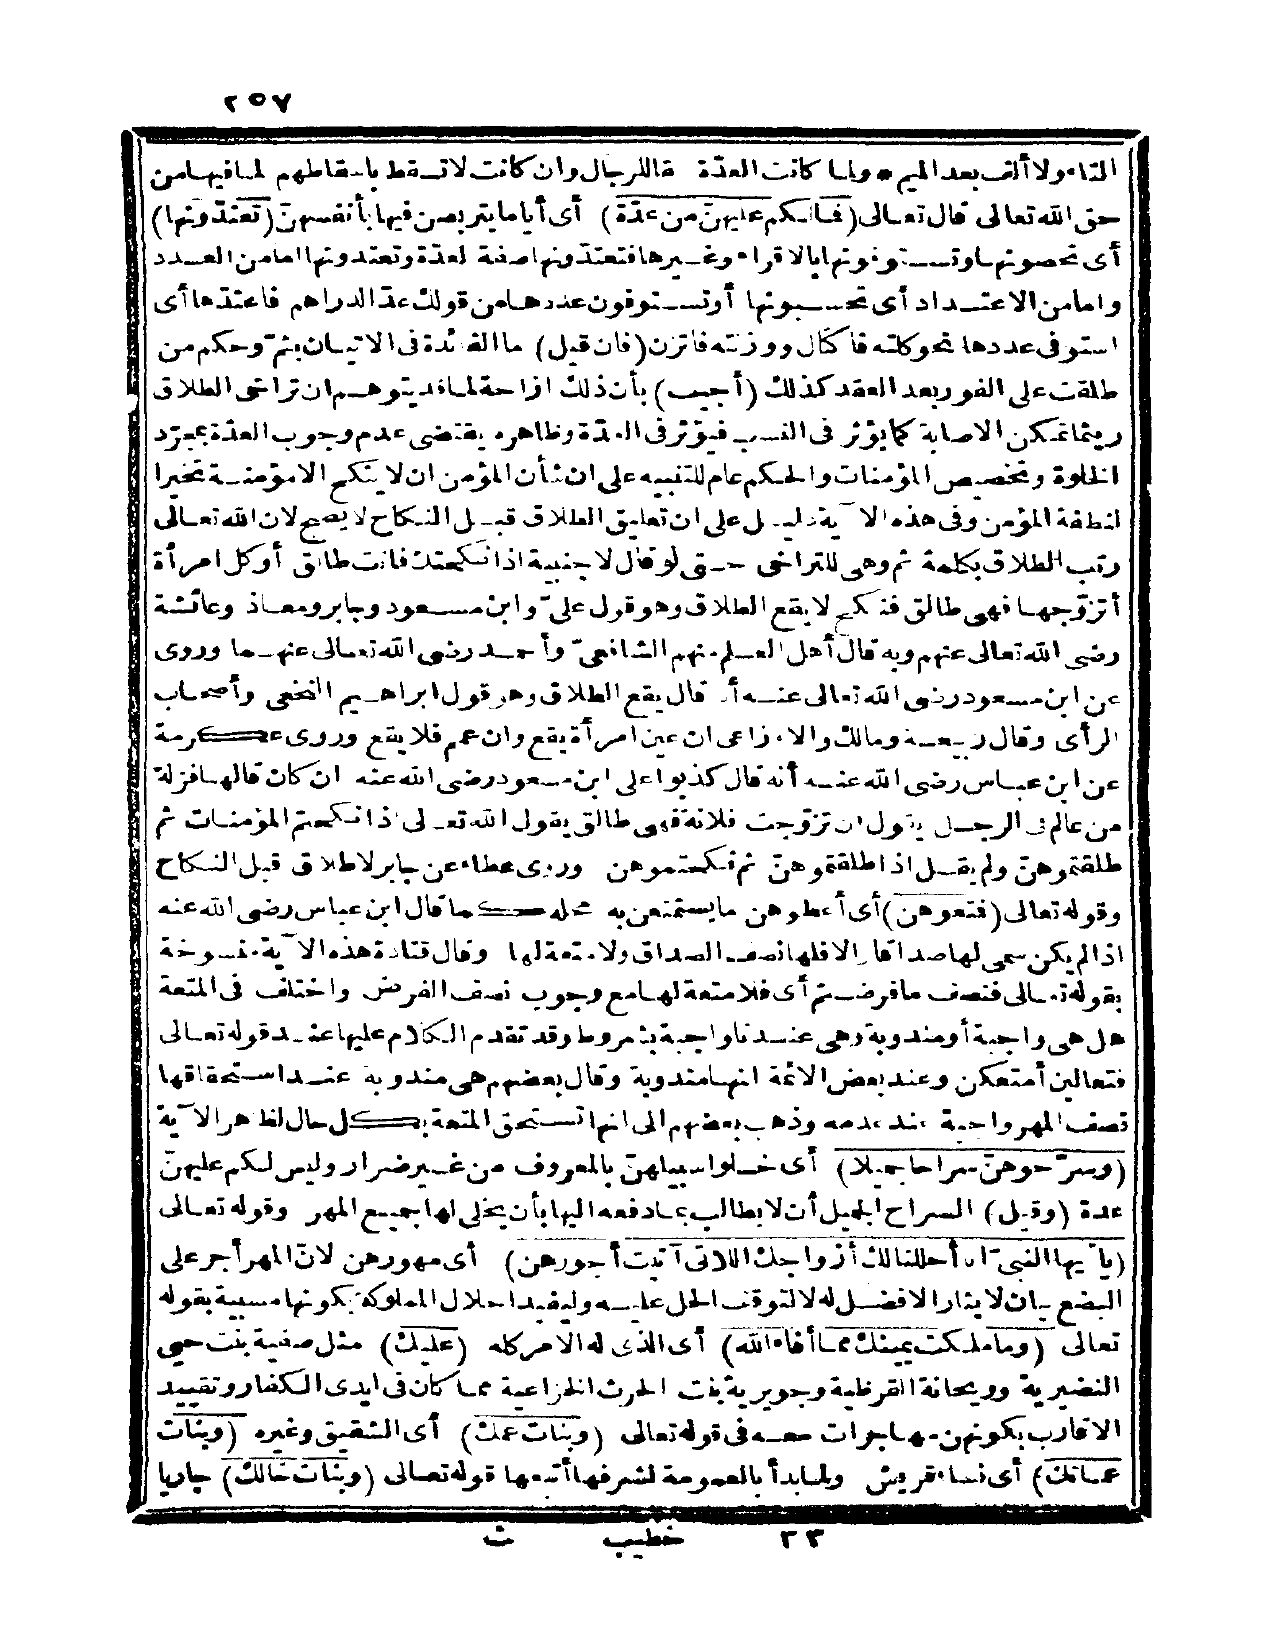 ٢٥٧
التاء ولا ألف بعد الميم * ولما كانت العدّة حقا للرجال وان كانت لا تسقط باسقاطهم لما فيها من
حق الله تعالى قال تعالى (فمالكم عليهنّ من عدّة) أى أياما يتربصن فيها بأنفسهنّ (تعتدّونها)
أى تحصونها وتستوفونها بالاقراء وغيرها فتعتدّونها صفة لعدة وتعتدونها اما من العدد
واما من الاعتداد أى تحسبونها أو تستوفون عددها من قولك عدّ الدراهم فاعتدّها أى
استوفى عددها نحو كلته فاكتال ووزنته فاتزن (فان قيل) ما الفائدة فى الاتيان بثمّ وحكم من
طلقت على الفور بعد العقد كذلك (أجيب) بأن ذلك ازاحة لما قد يتوهم ان تراخى الطلاق
ريثما تمكن الاصابة كما يؤثر فى النسب فيؤثر فى العدّة وظاهره يقتضى عدم وجوب العدّة بمجرّد
الخلوة وتخصيص المؤمنات والحكم عام للتنبيه على ان شأن المؤمن ان لا ينكح الا مؤمنة تخيرا
لنطفة المؤمن وفى هذه الآية دليل على ان تعليق الطلاق قبل النكاح لا يصح لان الله تعالى
رتب الطلاق بكلمة ثم وهى للتراخى حتى لو قال لاجنبية اذا نكحتك فانت طالق أو كل امرأة
أتزوّجها فهى طالق فنكح لا يقع الطلاق وهو قول علىّ وابن مسعود وجابر ومعاذ وعائشة
رضى الله تعالى عنهم وبه قال أهل العلم منهم الشافعىّ وأحمد رضى الله تعالى عنهما وروى
عن ابن مسعود رضى الله تعالى عنه أنه قال يقع الطلاق وهو قول ابراهيم النخعى وأصحاب
الرأى وقال ربيعة ومالك والاوزاعى ان عين امرأة يقع وان عم فلا يقع وروى عكرمة
عن ابن عباس رضى الله عنه أنه قال كذبوا على ابن مسعود رضى الله عنه ان كان قالها فزلة
من عالم فى الرجل يقول ان تزوّجت فلانة فهى طالق يقول الله تعالى اذا نكحتم المؤمنات ثم
طلقتموهنّ ولم يقل اذا طلقتموهنّ ثم نكحتموهن وروى عطاء عن جابر لا طلاق قبل النكاح
وقوله تعالى (فتعوهن) أى أعطوهن ما يستمتعن به محله كما قال ابن عباس رضى الله عنه
اذا لم يكن سمى لها صداقا والا فلها نصف الصداق ولا متعة لها وقال قتادة هذه الآية منسوخة
بقوله تعالى فنصف ما فرضتم أى فلا متعة لها مع وجوب نصف الفرض واختلف فى المتعة
هل هى واجبة أو مندوبة وهى عندنا واجبة بشروط وقد تقدم الكلام عليها عند قوله تعالى
فتعالين أمتعكن وعند بعض الائمة انها مندوبة وقال بعضهم هى مندوبة عند استحقاقها
نصف المهر واجبة عند عدمه وذهب بعضهم الى انها تستحق المتعة بكل حال لظاهر الآية
(وسرّحوهنّ سراحا جميلا) أى خلوا سبيلهنّ بالمعروف من غير ضرار وليس لكم عليهنّ
عدة (وقيل) السراح الجميل أن لا يطالب بما دفعه اليها بأن يخلى لها جميع المهر وقوله تعالى
(يا أيها النبىّ انا أحللنا لك أزواجك اللاتى آتيت أجورهن) أى مهورهن لانّ المهر أجر على
البضع بيان لايثار الافضل له لا لتوقف الحل عليه وليفيد احلال المملوكة بكونها مسبية بقوله
تعالى (وما ملكت يمينك مما أفاء الله) أى الذى له الامر كله (عليك) مثل صفية بنت حيى
النضيرية وريحانة القرظية وجويرية بنت الحرث الخزاعية مما كان فى ايدى الكفار وتقييد
الاقارب بكونهن مهاجرات معه فى قوله تعالى (وبنات عمك) أى الشقيق وغيره (وبنات
عماتك) أى نساء قريش ولما بدأ بالعمومة لشرفها أتبعها قوله تعالى (وبنات خالك) جاريا
٣٣ خطيب ث